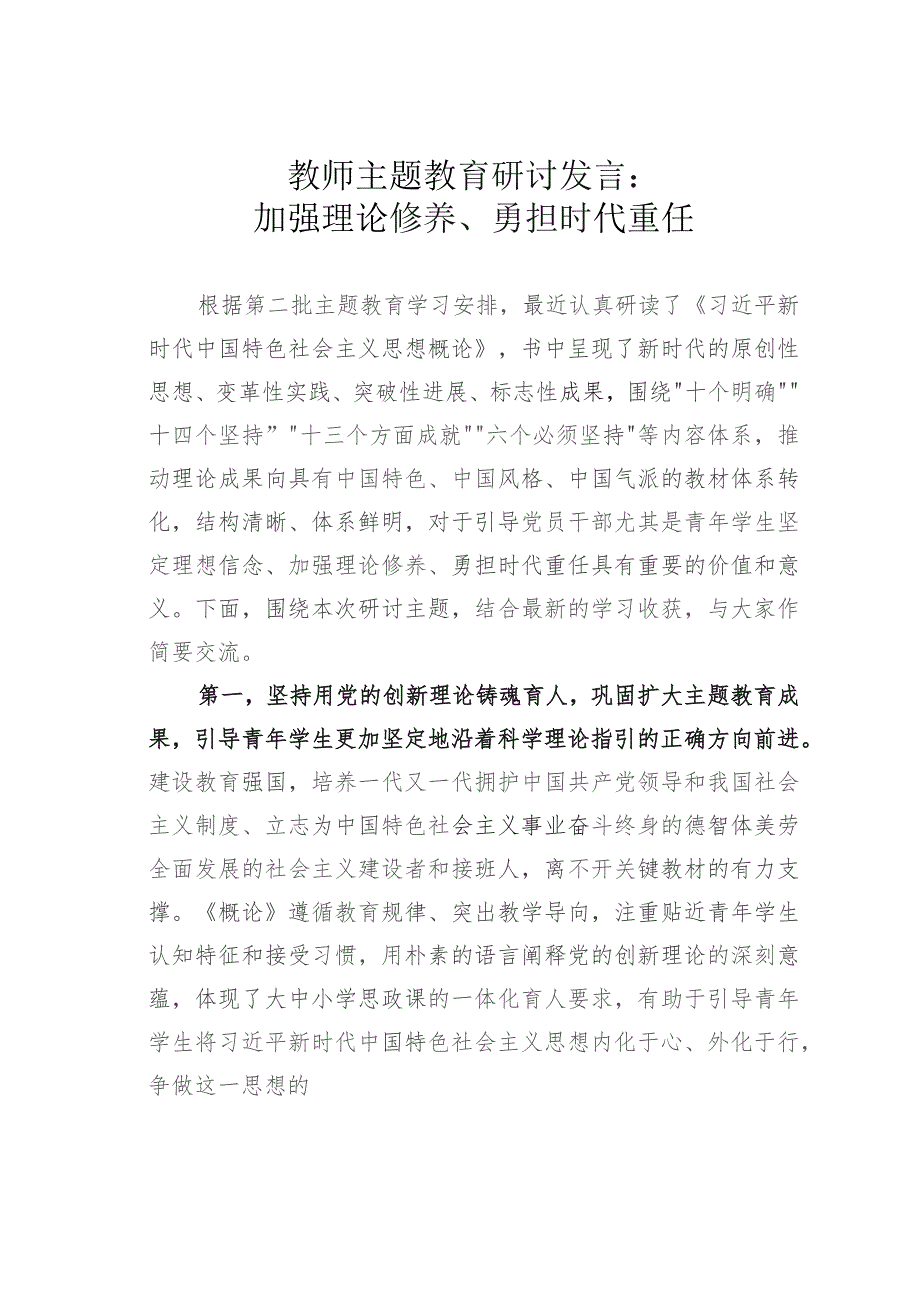 教师主题教育研讨发言：
加强理论修养、勇担时代重任
根据第二批主题教育学习安排，最近认真研读了《习近平新
时代中国特色社会主义思想概论》，书中呈现了新时代的原创性
思想、变革性实践、突破性进展、标志性成果，围绕"十个明确""
十四个坚持”"十三个方面成就""六个必须坚持"等内容体系，推
动理论成果向具有中国特色、中国风格、中国气派的教材体系转
化，结构清晰、体系鲜明，对于引导党员干部尤其是青年学生坚
定理想信念、加强理论修养、勇担时代重任具有重要的价值和意
义。下面，围绕本次研讨主题，结合最新的学习收获，与大家作
简要交流。
第一，坚持用党的创新理论铸魂育人，巩固扩大主题教育成
果，引导青年学生更加坚定地沿着科学理论指引的正确方向前进。
建设教育强国，培养一代又一代拥护中国共产党领导和我国社会
主义制度、立志为中国特色社会主义事业奋斗终身的德智体美劳
全面发展的社会主义建设者和接班人，离不开关键教材的有力支
撑。《概论》遵循教育规律、突出教学导向，注重贴近青年学生
认知特征和接受习惯，用朴素的语言阐释党的创新理论的深刻意
蕴，体现了大中小学思政课的一体化育人要求，有助于引导青年
学生将习近平新时代中国特色社会主义思想内化于心、外化于行，
争做这一思想的